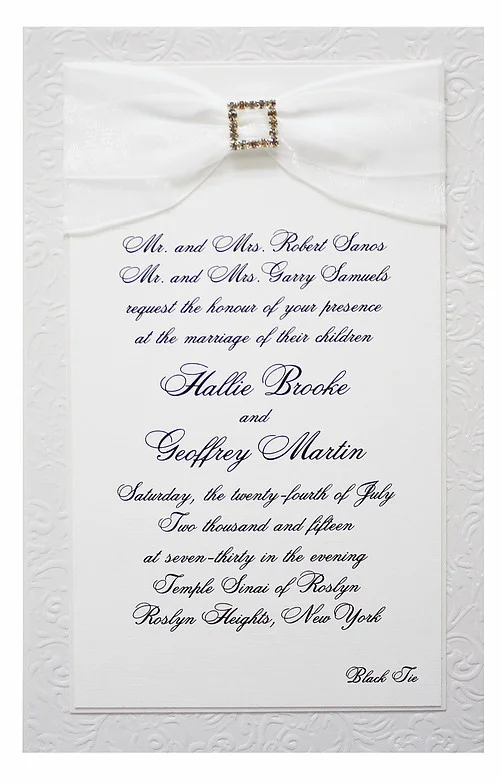 Mr. and Mrs. Robert Sanos
Mr. and Mrs. Garry Samuels
request the honour of your presence
at the marriage of their children
Hallie Brooke
and
Geoffrey Martin
Saturday, the twenty-fourth of July
Two thousand and fifteen
at seven-thirty in the evening
Temple Sinai of Roslyn
Roslyn Heights, New York
Black Tie